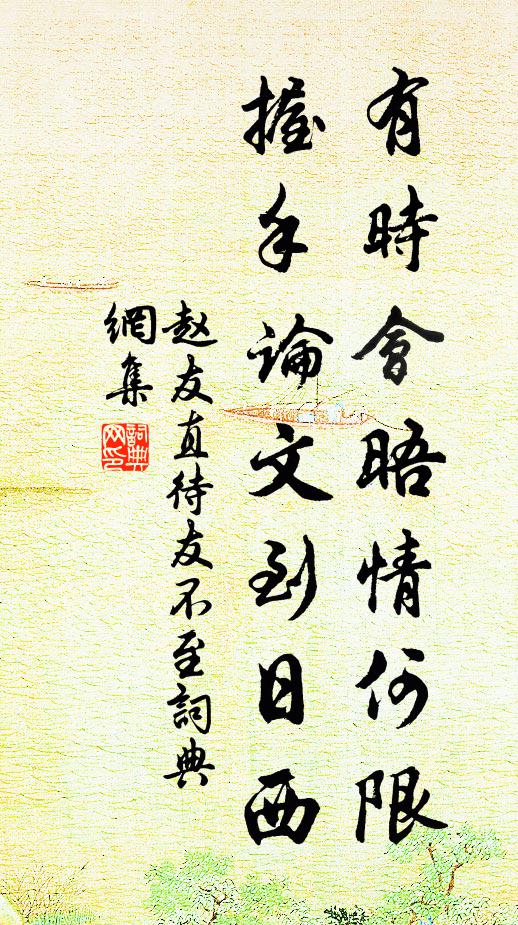 有時會晤情何限
握手論文到日西
赵友直待友不至詞典
網集
詞典
网印